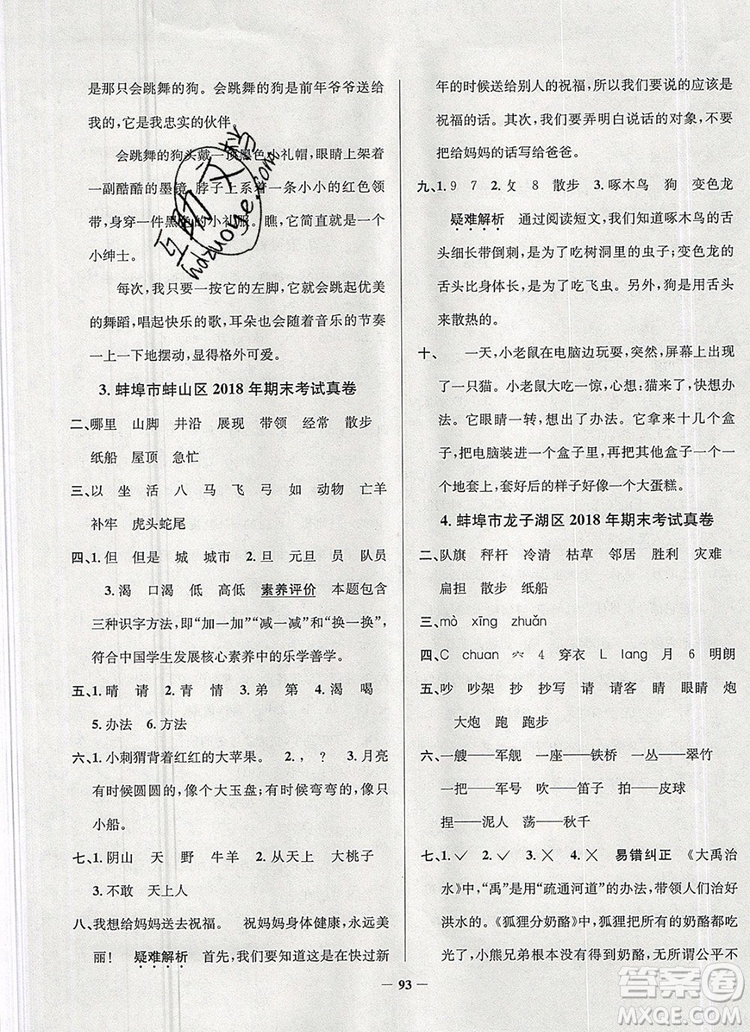 是那只会跳舞的狗。会跳舞的狗是前年爷爷送给
我的，它是我忠实的伙伴。
会跳舞的狗头戴一顶黑色小礼帽，眼睛上架着
一副酷酷的墨镜，脖子上系着一条小小的红色领
带，身穿一件黑色的小礼服。瞧，它简直就是一个
小绅士。
每次，我只要一按它的左脚，它就会跳起优美
的舞蹈，唱起快乐的歌，耳朵也会随着音乐的节奏
一上一下地摆动，显得格外可爱。
3. 蚌埠市蚌山区 2018 年期末考试真卷
二、哪里 山脚 井沿 展现 带领 经常 散步
纸船 屋顶 急忙
三、以 坐 活 八 马 飞 弓 如 动物 亡羊
补牢 虎头蛇尾
四、1. 但 但是 城 城市 2. 旦 元旦 员 队员
3. 渴 口渴 低 高低 素养评价 本题包含
三种识字方法，即“加一加”“减一减”和“换一换”，
符合中国学生发展核心素养中的乐学善学。
五、1. 晴 请 2. 情 清 3. 弟 第 4. 渴 喝
5. 办法 6. 方法
六、1. 小刺猬背着红红的大苹果。 2. ， ？ 3. 月亮
有时候圆圆的，像个大玉盘；有时候弯弯的，像只
小船。
七、1. 阴山 天 野 牛羊 2. 从天上 天上
3. 不敢 天上人
八、我想给妈妈送去祝福。 祝妈妈身体健康，永远美
丽！ 疑难解析 首先，我们要知道这是在快过新
年的时候送给别人的祝福，所以我们要说的应该是
祝福的话。其次，我们要弄明白说话的对象，不要
把给妈妈的话写给爸爸。
九、1. 9 7 2. 攵 8 散步 3. 啄木鸟 狗 变色龙
疑难解析 通过阅读短文，我们知道啄木鸟的
舌头细长带倒刺，为了吃树洞里的虫子；变色龙的
舌头比身体长，为了吃飞虫。狗是为了用舌头
来散热的。
十、 一天，小老鼠在电脑边玩耍，突然，屏幕上出现
了一只猫。小老鼠吓得四处逃窜，大喊救命！后
来，鼠哥哥眼睛一转，想出了办法。它们用几个盒
子，把电脑嵌进一个盒子里，再把几十个盒子一个
一个地套上去，样子好像一个大蛋糕。
4. 蚌埠市龙子湖区 2018 年期末考试真卷
二、队旗 秤杆 冷清 枯草 邻居 胜利 灾难
扁担 散步 纸船
三、mò xīng zhuǎn
四、C chuan 六 4 穿衣 L lang 月 6 明朗
五、吵 吵架 抄 抄写 睛 眼睛 晴 晴天 炮
大炮 跑 跑步
六、一艘——军舰 一座——铁桥 一丛——翠竹
一把——军号 吹——笛子 拍——皮球
捏——泥人 荡——秋千
七、1. ✓ 2. ✓ 3. ✕ 4. ✕ 易错纠正 《大禹治
水》中，“禹”是用“疏通河道”的办法，帮助人们治好
洪水的。《狐狸分奶酪》中，狐狸把所有的奶酪都吃
光了，小熊兄弟根本没得到奶酪，无所谓公平不
93
互助文档
huzhuoye.com
答案圈
MXQE.COM